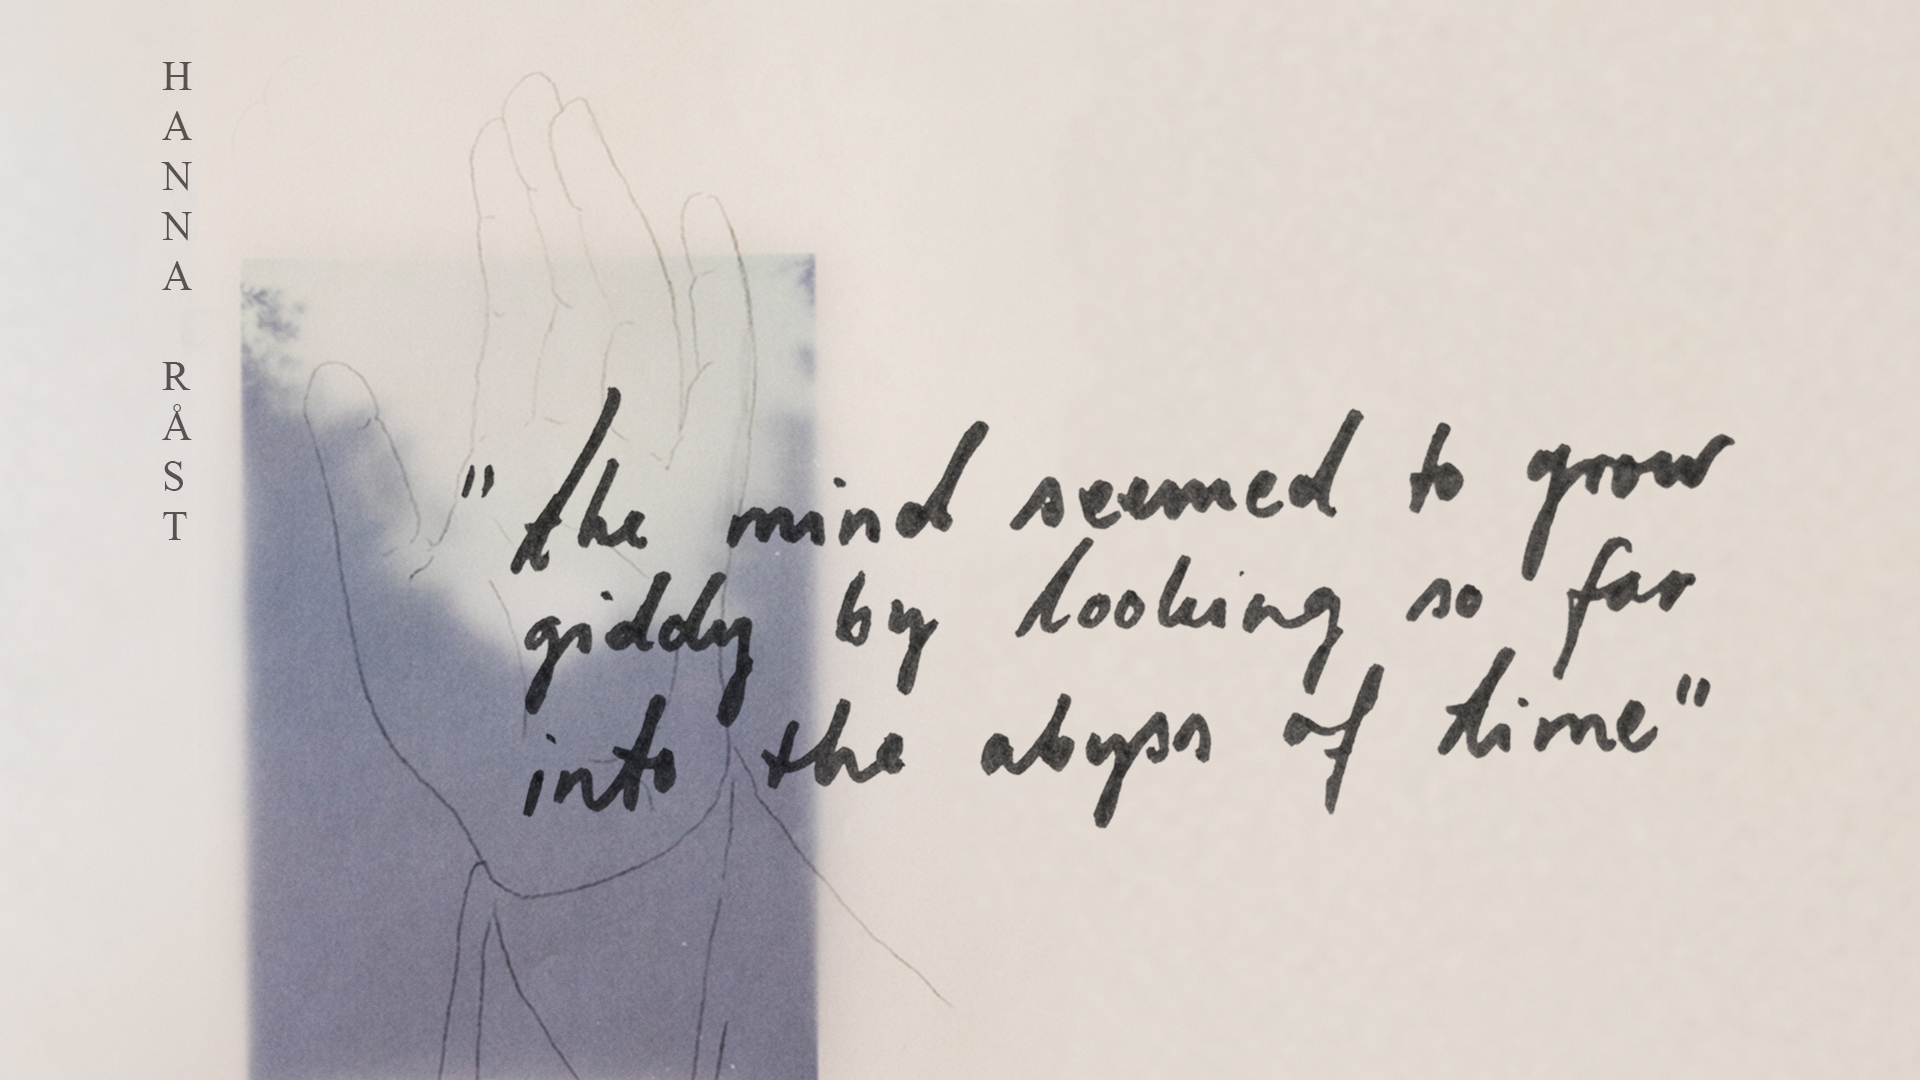 HANNA RÅST
"the mind seemed to grow
giddy by looking so far
into the abyss of time"